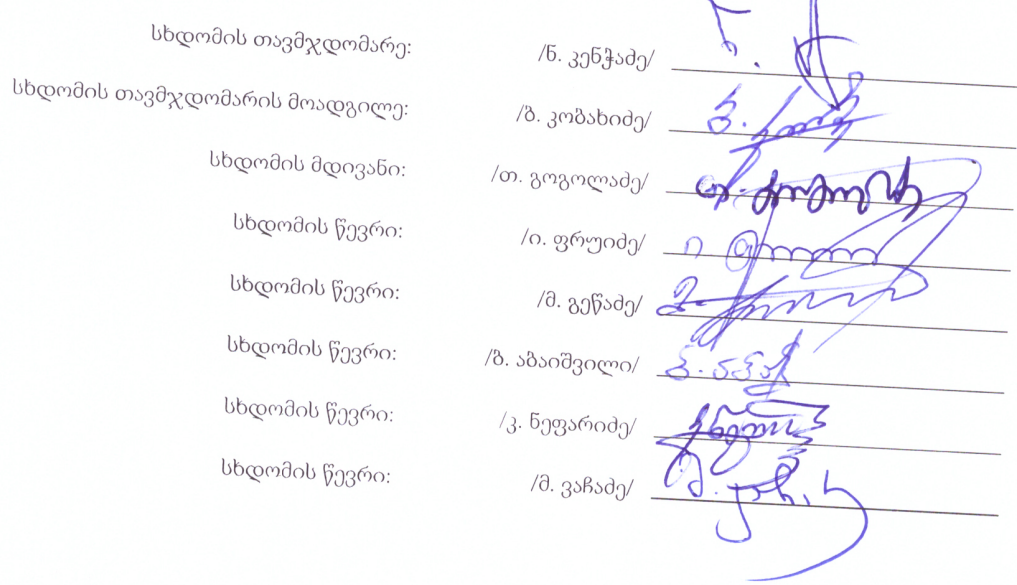 სხდომის თავმჯდომარე: /ნ. კენჭაძე/
სხდომის თავმჯდომარის მოადგილე: /ბ. კობახიძე/
სხდომის მდივანი: /თ. გოგოლაძე/
სხდომის წევრი: /ი. ფრუიძე/
სხდომის წევრი: /მ. გეწაძე/
სხდომის წევრი: /ზ. აბაიშვილი/
სხდომის წევრი: /კ. ნეფარიძე/
სხდომის წევრი: /მ. ვაჩაძე/